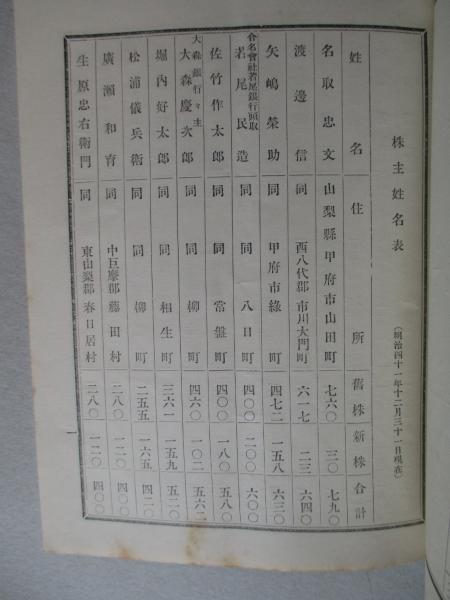 株主姓名表
(明治四十一年十二月三十一日現在)
姓名 住所 舊株 新株 合計
名取忠文 山梨縣甲府市山田町 七六〇 三〇 七九〇
渡邊信 同 西八代郡市川大門町 六一七 二三 六四〇
矢嶋榮助 同 甲府市綠町 四七二 一五八 六三〇
合名會社若尾銀行頭取
若尾民造 同 同 八日町 四〇〇 二〇〇 六〇〇
佐竹作太郎 同 同 常盤町 四〇〇 一八〇 五八〇
大森銀行々主
大森慶次郎 同 同 柳町 四六〇 一〇二 五六二
堀内好太郎 同 同 相生町 三六一 一五九 五二〇
松浦儀兵衛 同 同 柳町 二五五 一六五 四二〇
廣瀨和育 同 中巨摩郡藤田村 二八〇 一二〇 四〇〇
生原忠右衛門 同 東山梨郡春日居村 二八〇 一二〇 四〇〇
一